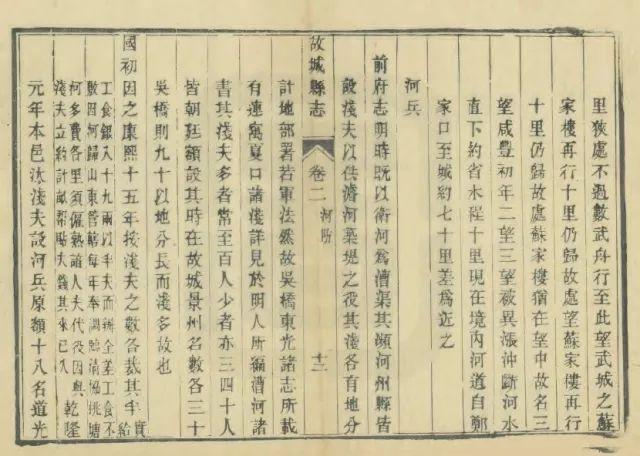 里狹處不過數武舟行至此望武城之蘇
家樓再行十里仍歸故處望蘇家樓再行
十里仍歸故處蘇家樓猶在望中故名三
望咸豐初年二望三望被異漲沖斷河水
直下約省水程十里現在境內河道自鄭
家口至城約七十里差為近之
河兵
前府志明時既以衛河為漕渠其瀕河州縣皆
設淺夫以供濬河築堤之役其淺各有地分
故城縣志
卷二
河防
十二
計地部署若軍法然故吳橋東光諸志所載
有連窩夏口諸淺詳見於明人所編漕河諸
書其淺夫多者常至百人少者亦三四十人
皆朝廷額設其時在故城景州名數各三十
吳橋則九十以地分長而淺多故也
國初因之康熙十五年按淺夫之數各裁其半實給
工食銀八十九兩以半夫而辦全差工食不
敷因河歸山東管轄每年奉調臨清協挑塘
河多費各里須僱熟諳人夫代役因與乾隆
淺夫立約計畝幫貼夫錢其來已久
元年本邑汰淺夫設河兵原額十八名道光